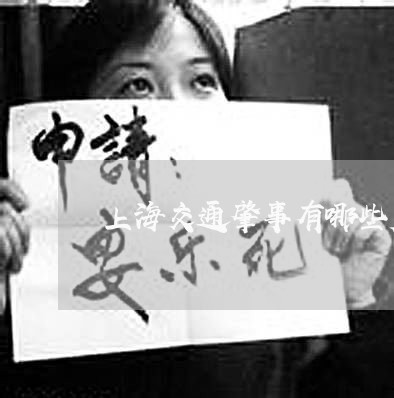 申請：
上海交通肇事有哪些
要乐死